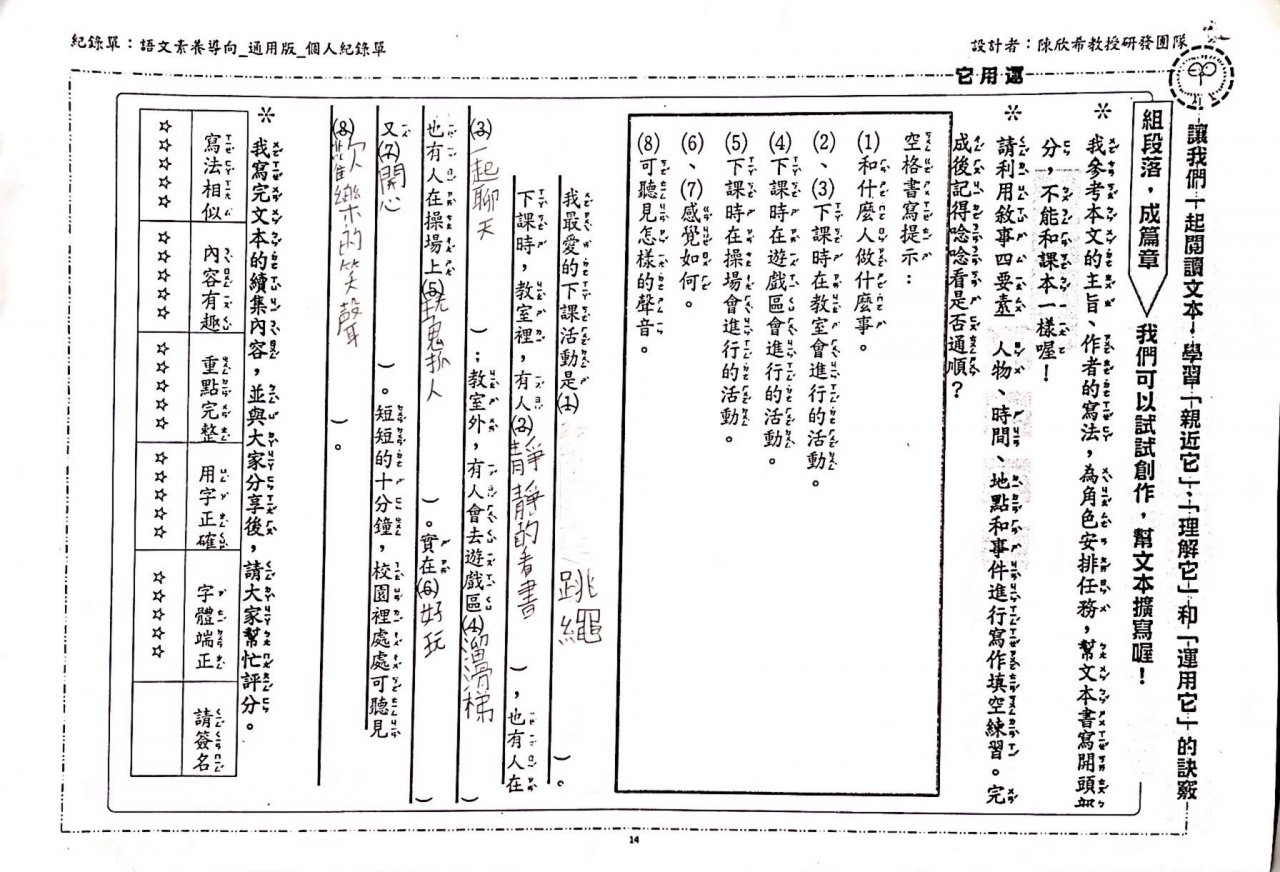 紀錄單：語文素養導向_通用版_個人紀錄單
設計者：陳欣希教授研發團隊
運用它
讓我們一起閱讀文本，學習「親近它」、「理解它」和「運用它」的訣竅
組段落，成篇章
我們可以試試創作，幫文本擴寫喔！
＊我參考本文的主旨、作者的寫法，為角色安排任務，幫文本書寫開頭部
分，不能和課本一樣喔！
＊請利用敘事四要素 人物、時間、地點和事件進行寫作填空練習。完
成後記得唸唸看是否通順？
空格書寫提示：
(1)和什麼人做什麼事。
(2)、(3)下課時在教室會進行的活動。
(4)下課時在遊戲區會進行的活動。
(5)下課時在操場會進行的活動。
(6)、(7)感覺如何。
(8)可聽見怎樣的聲音。
我最愛的下課活動是(1)跳繩）。
下課時，教室裡，有人(2)靜靜的看書），也有人在
(3)一起聊天）；教室外，有人會去遊戲區(4)溜滑梯）
也有人在操場上(5)玩鬼抓人）。實在(6)好玩）
又(7)開心）。短短的十分鐘，校園裡處處可聽見
(8)歡樂的笑聲）。
＊我寫完文本的續集內容，並與大家分享後，請大家幫忙評分。
寫法相似 內容有趣 重點完整 用字正確 字體端正 請簽名
☆☆☆☆☆ ☆☆☆☆☆ ☆☆☆☆☆ ☆☆☆☆☆ ☆☆☆☆☆
14